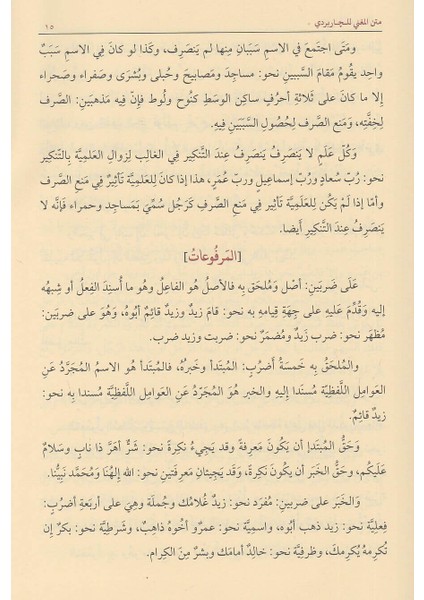 متن المغني للجاربردي
١٥
ومَتَى اجتمَعَ في الاسمِ سَبَبَانِ منها لم يَنصَرِف، وكَذا لو كانَ في الاسمِ سَبَبٌ
واحِد يقُومُ مَقامَ السَّببينِ نحوُ: مساجِدَ ومَصابيحَ وحُبلى وبُشرَى وصَفراء وصَحراء
إلا ما كانَ على ثَلاثةِ أحرُفٍ ساكِنِ الوسَطِ كنُوحٍ ولُوطٍ فإنَّ فيه مَذهبَينِ: الصَّرف
لِخِفَّتِه، ومَنع الصَّرفِ لِحُصُولِ السَّبَبَينِ فِيهِ.
وَكُلُّ عَلَمٍ لا يَنصَرِفُ يَنصَرِفُ عِندَ التَّنكيرِ فِي الغالِبِ لِزوالِ العَلمِيَّةِ بِالتَّنكيرِ
نحو: رُبَّ سُعادٍ ورُبَّ إسماعِيلٍ وربَّ عُمَرٍ، هذا إذا كانَ لِلعَلَمِيَّةِ تَأثيرٌ فِي مَنعِ الصَّرفِ
وأمّا إذا لَمْ يَكُن لِلعَلَمِيَّةِ تَأثير فِي مَنعِ الصَّرفِ كَرَجُلٍ سُمِّيَ بِمَساجِد وحمراء فَإنَّه لا
يَنصَرِفُ عندَ التَّنكيرِ أيضا.
[المَرفُوعاتُ]
عَلَى ضَربَينِ: أصل ومُلحَق بِه فالأصلُ هو الفاعِلُ وهُو ما أُسنِدَ الفِعلُ أو شِبهُه
إليه وقُدِّمَ عَلَيهِ على جِهَةِ قِيامِه بِه نحوُ: قامَ زيدٌ وزيدٌ قائِمٌ أبُوه، وهُوَ عَلَى ضَربَينِ:
مُظهَر نحوُ: ضَرب زَيدٌ ومُضمَرٌ نحو: ضربت وزيد ضرب.
والمُلحَقُ بِه خَمسَةُ أضرُبٍ: المُبتَدأ وخَبرُهُ، فالمُبتَدأ هو الاسمُ المُجَرَّدُ عَنِ
العَوامِلِ اللَّفظِيَّة مُسنَدا إلَيهِ والخبر هُوَ المُجَرّدُ عَن العَوامِل اللَّفظِيَّة مُسندا به نحو:
زيدٌ قائِمٌ.
وَحَقُّ المُبتَدإ أن يَكُونَ مَعرِفَة وقد يَجِيءُ نكِرَةً نحو: شَرٌّ أهَرَّ ذا نابٍ وسَلامٌ
عَلَيكُم، وحَقُّ الخَبَر أن يَكُونَ نَكِرَة، وَقَد يَجِيئانِ مَعرِفَتَينِ نحو: الله إلَهُنَا ومُحَمَّد نَبِيُّنا.
وَالخَبَر على ضَربينِ: مُفرَد نحو: زيدٌ غُلامُك وجُملَة وهِيَ على أربَعَةِ أضرُبٍ:
فِعلِيَّة نحو: زيد ذهب أبُوه، واسمِيَّة نحو: عمرٌو أخُوهُ ذاهِبٌ، وشَرطِيَّة نحو: بكرٌ إن
تُكرِمهُ يُكرِمكَ، وظَرفِيَّة نحو: خالِدٌ أمامَك وبشرٌ مِنَ الكِرام.